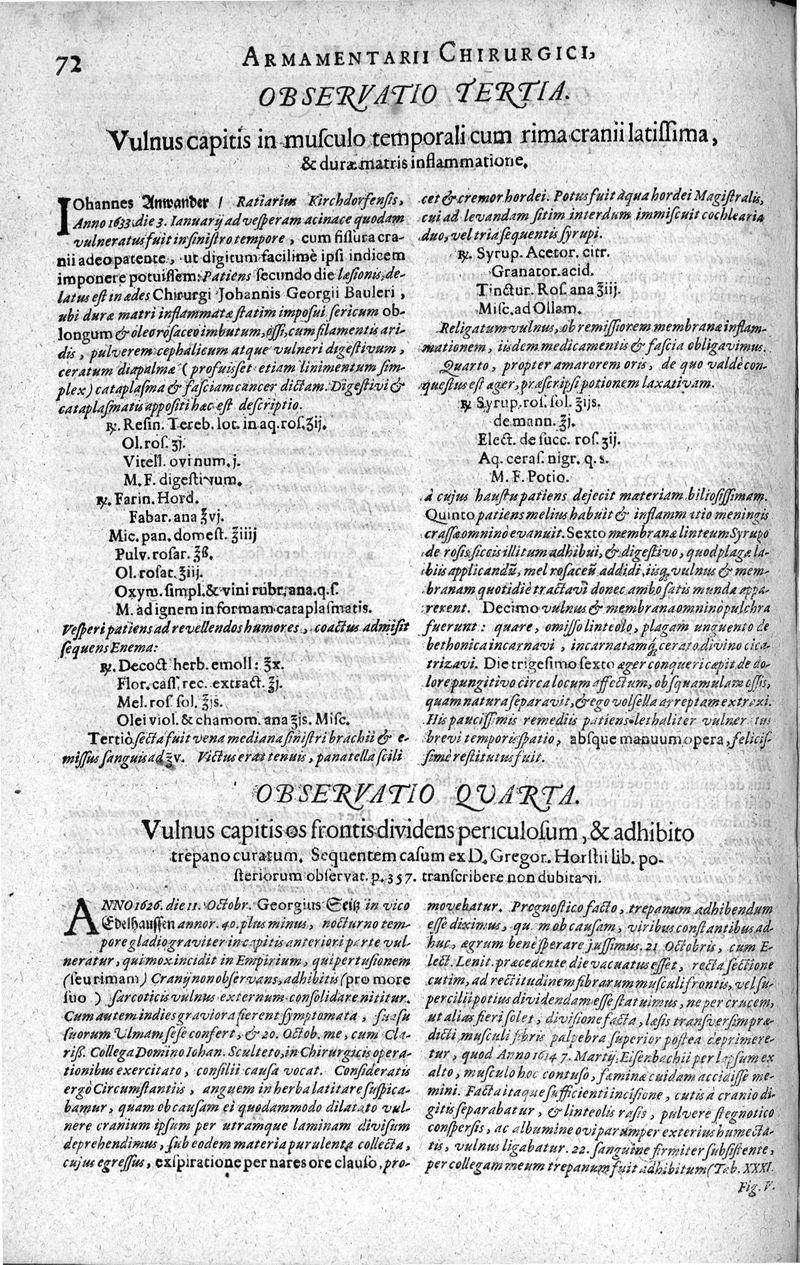 72
ARMAMENTARII CHIRURGICI,
OBSERVATIO TERTIA.
Vulnus capitis in musculo temporali cum rima cranii latissima,
& duræ matris inflammatione.
IOhannes Anwander / Ratiarius Kirchdorfensis,
Anno 1633. die 3. Ianuarij ad vesperam acinace quodam
vulneratus fuit in sinistro tempore, cum fissura cra-
nii adeo patente, ut digitum facilimè ipsi indicem
imponere potuissem: Patiens secundo die læsionis, de-
latus est in ædes Chirurgi Johannis Georgii Bauleri,
ubi duræ matri inflammatæ statim imposui sericum ob-
longum & oleo rosaceo imbutum, ossi, cum filamentis ari-
dis, pulverem cephalicum atque vulneri digestivum,
ceratum diapalmæ (profuisset etiam linimentum sim-
plex) cataplasma & fasciam cancer dictam. Digestivi &
cataplasmatis appositi hæc est descriptio.
℞. Resin. Tereb. lot. in aq. ros. ʒij.
Ol. ros. ʒj.
Vitell. ovi num. j.
M. F. digestivum.
℞. Farin. Hord.
Fabar. ana ℥vj.
Mic. pan. domest. ℥iiij
Pulv. rosar. ℥ß.
Ol. rosat. ℥iij.
Oxym. simpl. & vini rubr. ana. q. s.
M. ad ignem in formam cataplasmatis.
Vesperi patiens ad revellendos humores, coactus admisit
sequens Enema:
℞. Decoct herb. emoll: ℥x.
Flor. cass. rec. extract. ℥j.
Mel. ros sol. ℥js.
Olei viol. & chamom. ana ℥js. Misc.
Tertiò secta fuit vena mediana sinistri brachii & e-
missus sanguis ad ℥v. Victus erat tenuis, panatella scili
cet & cremor hordei. Potus fuit aqua hordei Magistralis,
cui ad levandam sitim interdum immiscuit cochlearia
duo, vel tria sequentis syrupi.
℞. Syrup. Acetos. citr.
Granator. acid.
Tinctur. Ros. ana ℥iij.
Misc. ad Ollam.
Religatum vulnus, ob remissiorem membranæ inflam-
mationem, iisdem medicamentis & fascia obligavimus.
Quarto, propter amarorem oris, de quo valdè con-
questus est æger, præscripsi potionem laxativam.
℞ Syrup. ros. sol. ℥ijs.
de mann. ℥j.
Elect. de succ. ros. ʒij.
Aq. ceras. nigr. q. s.
M. F. Potio.
à cujus haustu patiens dejecit materiam biliosissimam.
Quinto patiens melius habuit & inflammatio meningis
crassæ omninò evanuit. Sexto membranæ linteum Syrupo
de rosis siccis illitum adhibui, & digestivo, quod plagæ la-
biis applicandū, mel rosaceū addidi, iisq; vulnus & mem-
branam quotidiè tractavi donec ambo satis munda appa-
rerent. Decimo vulnus & membrana omnino pulchra
fuerunt: quare, omisso linteolo, plagam unguento de
bethonica incarnavi, incarnatamq; cerato divino cica-
trizavi. Die trigesimo sexto æger conqueri cæpit de do-
lore pungitivo circa locum affectum, ob squamulam ossis,
quam natura separavit, & ego volsella arreptam extraxi.
His paucissimis remediis patiens lethaliter vulneratus
brevi temporis spatio, absque manuum opera, felicis-
simè restitutus fuit.
OBSERVATIO QUARTA.
Vulnus capitis os frontis dividens periculosum, & adhibito
trepano curatum. Sequentem casum ex D. Gregor. Horstii lib. po-
steriorum observat. p. 357. transcribere non dubitavi.
ANNO 1626. die 11. Octobr. Georgius Seitz in vico
Edelhaussen annor. 40. plus minus, nocturno tem-
pore gladio graviter in capitis anteriori parte vul-
neratur, qui mox incidit in Empirium, qui pertusionem
(seu rimam) Cranij non observans, adhibitis (pro more
suo) sarcoticis vulnus externum consolidare nititur.
Cum autem indies graviora fierent symptomata, suasu
suorum Ulmam sese confert, & 20. Octob. me, cum Cla-
riss. Collega Domino Iohan. Sculteto, in Chirurgicis opera-
tionibus exercitato, consilii causa vocat. Consideratis
ergò Circumstantiis, anguem in herba latitare suspica-
bamur, quam ob causam ei quodammodo dilatato vul-
nere cranium ipsum per utramque laminam divisum
deprehendimus, sub eodem materia purulenta collecta,
cujus egressus, exspiratione per nares ore clauso, pro-
movebatur. Prognostico facto, trepanum adhibendum
esse diximus, quam ob causam, viribus constantibus ad-
huc, ægrum benè sperare jussimus. 21 Octobris, cum E-
lect. Lenit. præcedente die vacuatus esset, recta sectione
cutim, ad rectitudinem fibrarum musculi frontis, vel su-
percilii potius dividendam esse statuimus, ne per crucem,
ut alias fieri solet, divisione facta, læsis transversim præ-
dicti musculi fibris palpebra superior postea deprimere-
tur, quod Anno 1614 7. Martij Eisenbachii per lapsum ex
alto, musculo hoc contuso, fæminæ cuidam accidisse me-
mini. Facta itaque sufficienti incisione, cutis à cranio di-
gitis separabatur, & linteolis rasis, pulvere stegnotico
conspersis, ac albumine ovi parumper exterius humecta-
tis, vulnus ligabatur. 22. sanguine firmiter subsistente,
per collegam meum trepanum fuit adhibitum (Tab. XXXI.
Fig. V.